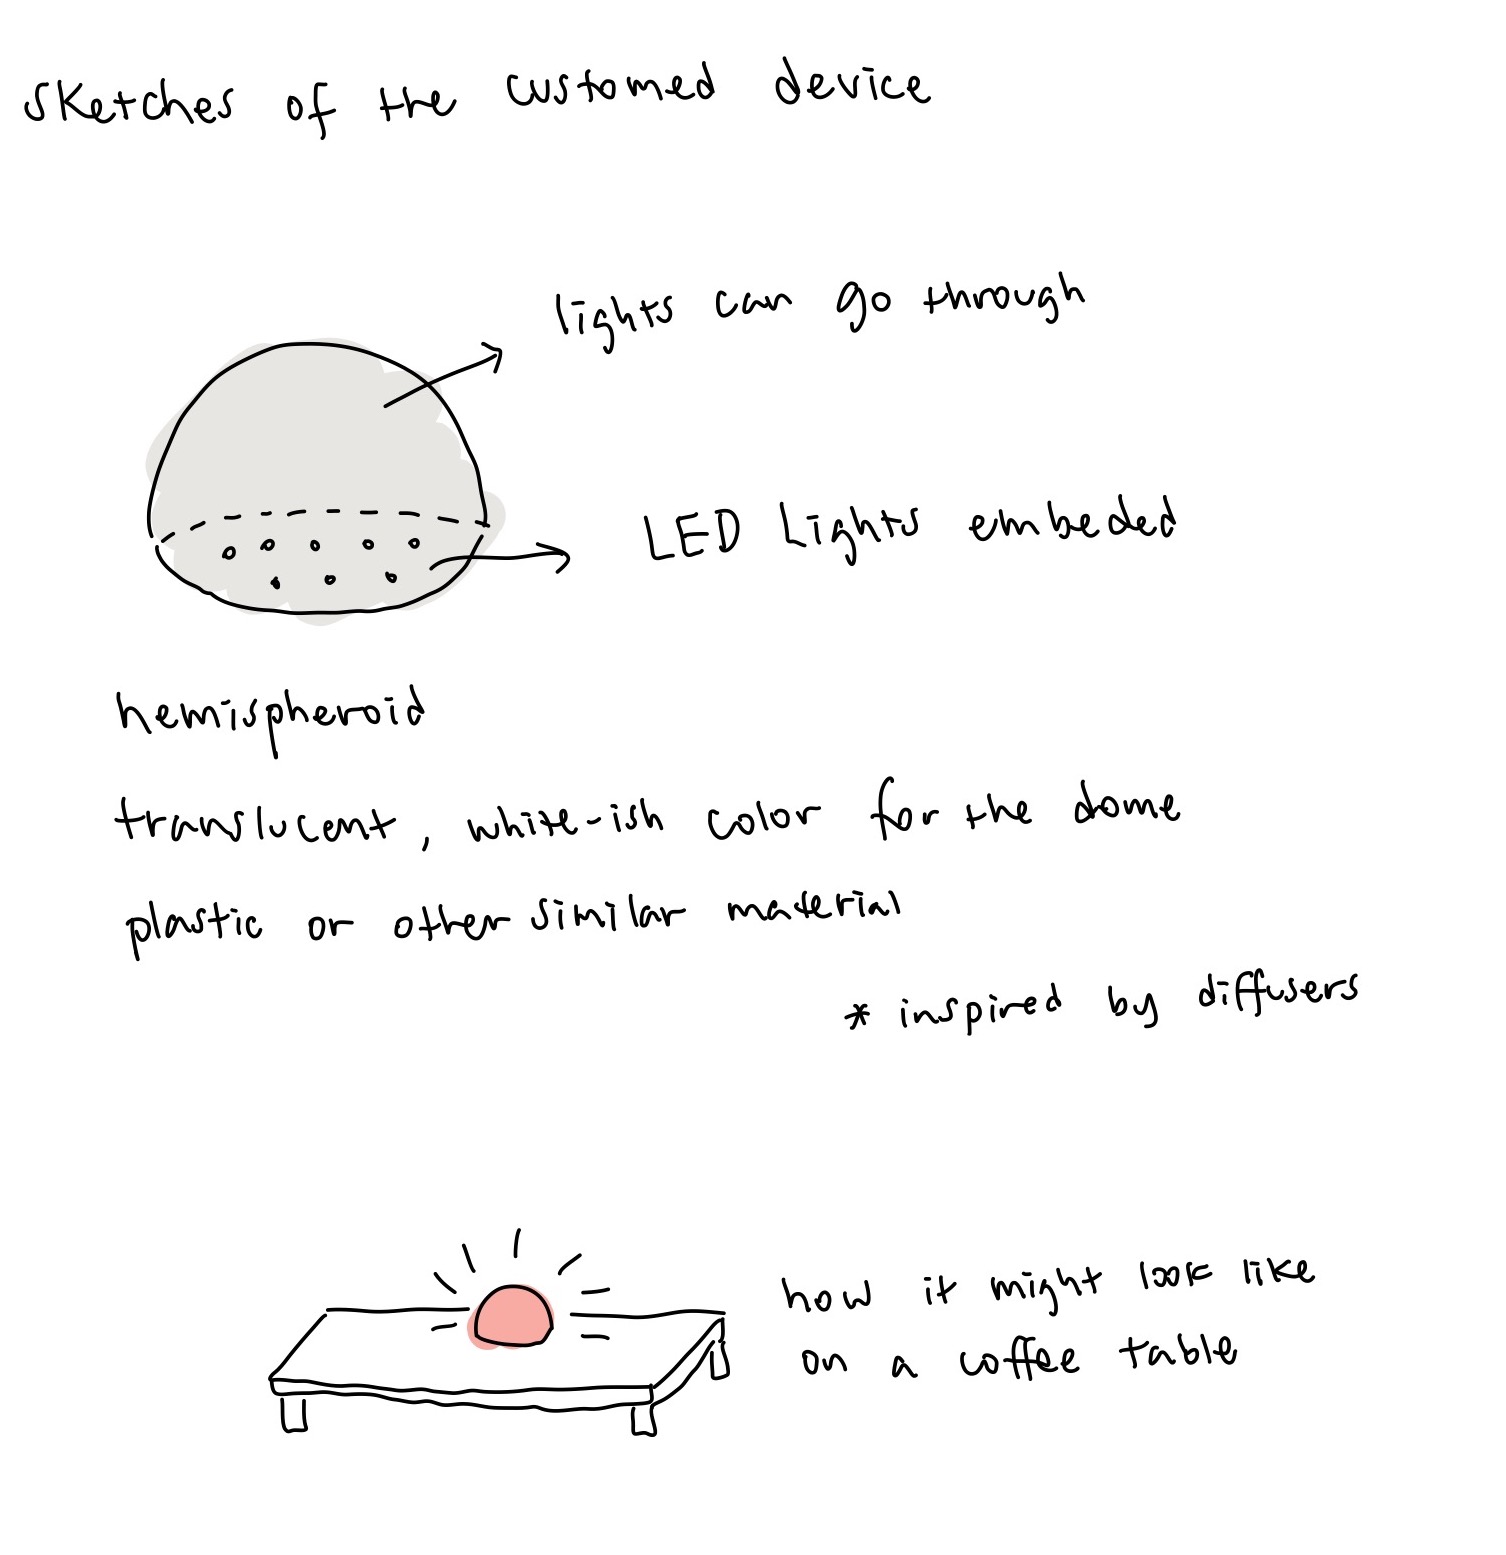 sketches of the customed device
lights can go through
LED Lights embeded
hemispheroid
translucent, white-ish color for the dome
plastic or other similar material
* inspired by diffusers
how it might look like
on a coffee table